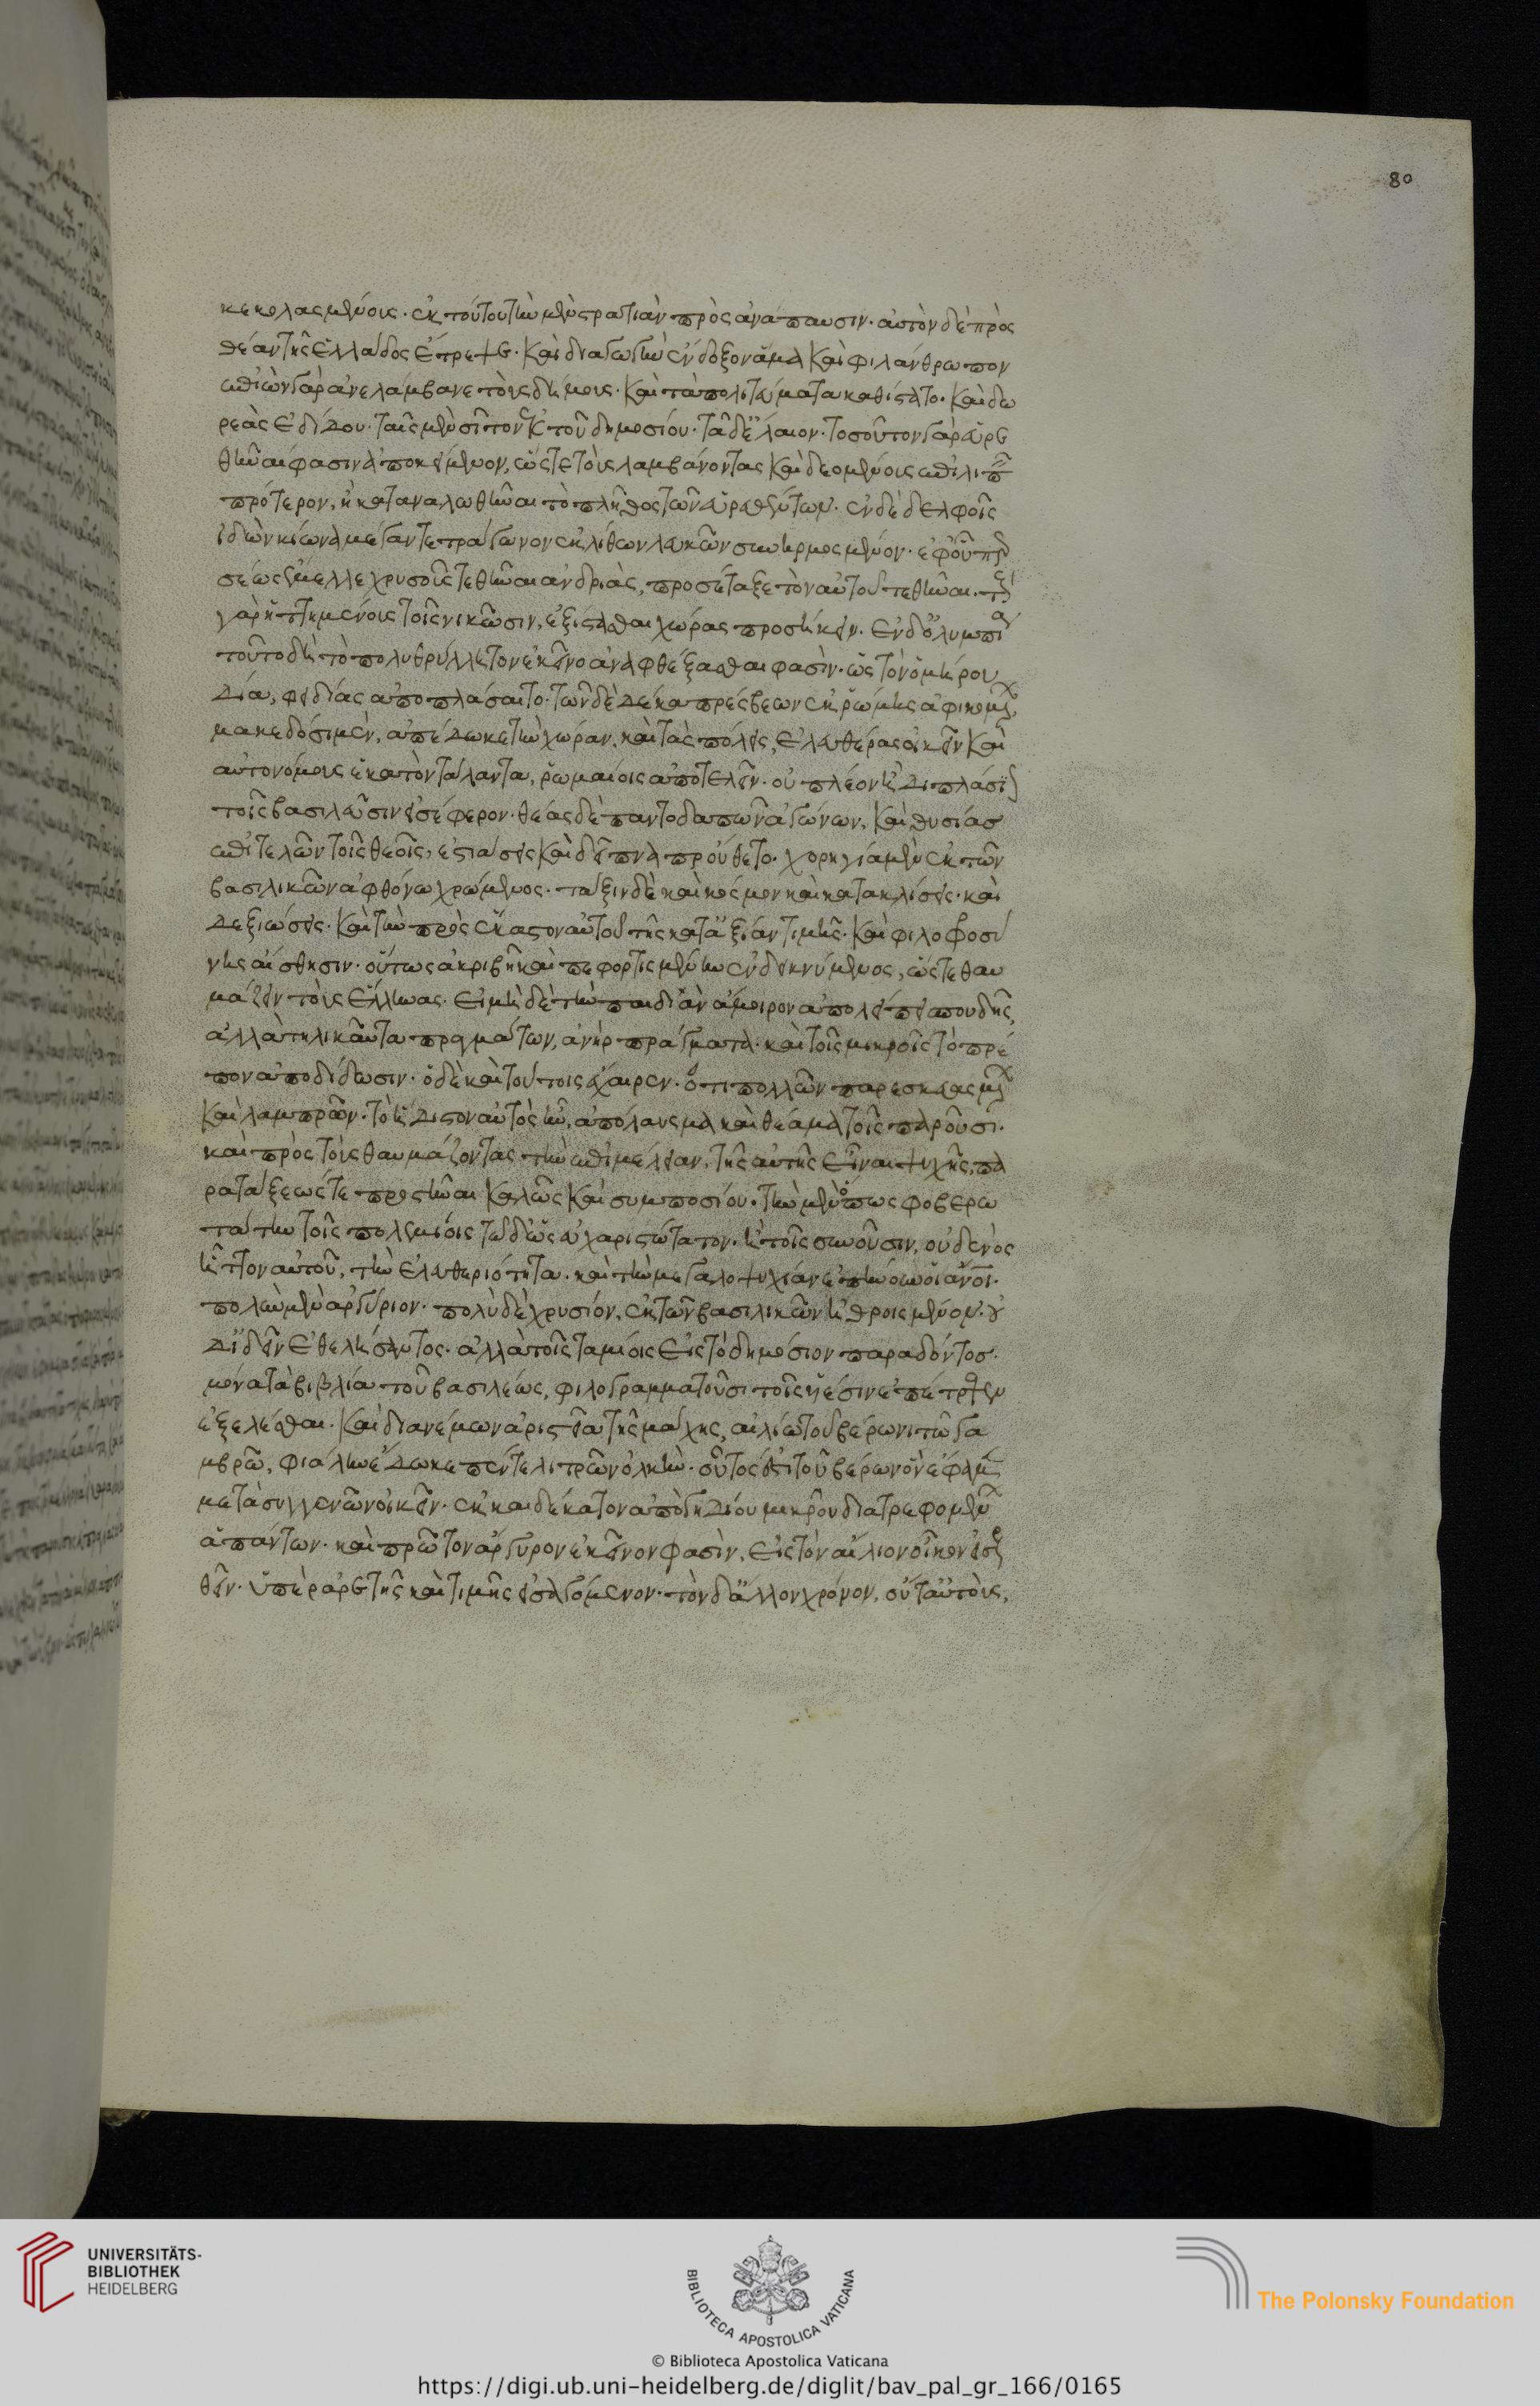 80
κεκολασμένοις. ἐκ τούτου τὴν μὲν στρατιὰν πρὸς ἀνάπαυσιν. αὐτὸν δὲ πρὸς
θέαν τῆς ἑλλάδος ἔτρεψε. καὶ διαγωγὴν ἔνδοξον ἅμα καὶ φιλάνθρωπον
ἐπιὼν γὰρ ἀνελάμβανε τοὺς δήμους. καὶ τὰ πολιτεύματα καθίστατο. καὶ δω
ρεὰς ἐδίδου. ταῖς μὲν σῖτον ἐκ τοῦ δημοσίου. ταῖς δ' ἔλαιον. τοσοῦτον γὰρ εὑρε
θῆναι φασὶν ἀποκείμενον, ὥστε τοὺς λαμβάνοντας καὶ δεομένους ἐπιλιπ
πρότερον, ἢ καταναλωθῆναι τὸ πλῆθος τῶν εὑρεθέντων. ἐν δὲ δελφοῖς
ἰδὼν κίονα μέγαν τετράγωνον ἐκ λίθων λευκῶν συνηρμοσμένον. ἐφ' οὗ περ
σέως ἔμελλε χρυσοῦς τεθῆναι ἀνδριὰς, προσέταξε τὸν αὑτοῦ τεθῆναι. τοὺς
γὰρ ἡττημένους τοῖς νικῶσιν, ἐξίστασθαι χώρας προσήκειν. ἐν δ' ὀλυμπία
τοῦτο δὴ τὸ πολυθρύλλητον ἐκεῖνο ἀναφθέγξασθαι φασὶν. ὡς τὸν ὁμήρου
δία, φειδίας ἀποπλάσαιτο. τῶν δὲ δέκα πρέσβεων ἐκ ῥώμης ἀφικομέν
μακεδόσι μὲν, ἀπέδωκε τὴν χώραν, καὶ τὰς πόλεις, ἐλευθέρας οἰκεῖν καὶ
αὐτονόμους ἑκατὸν τάλαντα, ῥωμαίοις ἀποτελεῖν. οὗ πλέον ἢ διπλάσιον
τοῖς βασιλεῦσιν εἰσέφερον. θέας δὲ παντοδαπῶν ἀγώνων, καὶ θυσίας
ἐπιτελῶν τοῖς θεοῖς, ἑστιάσεις καὶ δεῖπνα προὔθετο. χορηγία μὲν ἐκ τῶν
βασιλικῶν ἀφθόνω χρώμενος. τάξιν δὲ καὶ κόσμον καὶ κατακλίσεις. καὶ
δεξιώσεις. καὶ τὴν πρὸς ἕκαστον αὑτοῦ τῆς κατ' ἀξίαν τιμῆς. καὶ φιλοφροσύ
νης αἴσθησιν. οὕτως ἀκριβῆ καὶ πεφροντισμένην ἐνδεικνύμενος, ὥστε θαυ
μάζειν τοὺς ἕλληνας. εἰ μὴ δὲ τὴν παιδιὰν ἄμοιρον ἀπολείπει σπουδῆς,
ἀλλὰ τηλικαῦτα πραγμάτων, ἀνὴρ πράγματα. καὶ τοῖς μικροῖς τὸ πρέ
πον ἀποδίδωσιν. ὁ δὲ καὶ τούτοις ἔχαιρεν. ὅτι πολλῶν παρεσκευασμέν
καὶ λαμπρῶν. τὸ ἥδιστον αὐτὸς ἦν, ἀπόλαυσμα καὶ θέαμα τοῖς παροῦσι.
καὶ πρὸς τοὺς θαυμάζοντας τὴν ἐπιμέλειαν, τῆς αὐτῆς εἶναι ψυχῆς, πα
ρατάξεώς τε προστῆναι καλῶς καὶ συμποσίου. τὴν μὲν ὅπως φοβερω
τάτην τοῖς πολεμίοις τὸ δ' ὡς εὐχαριστώτατον. ἦ τοῖς συνοῦσιν, οὐδενὸς
ἧττον αὐτοῦ, τὴν ἐλευθεριότητα. καὶ τὴν μεγαλοψυχίαν ἐπήνουν οἱ ἄνοι.
πολὺ μὲν ἀργύριον. πολὺ δὲ χρυσίον, ἐκ τῶν βασιλικῶν ἠθροισμένον. οὐ
δ' ἰδεῖν ἐθελήσαντος. ἀλλὰ τοῖς ταμίαις εἰς τὸ δημόσιον παραδόντος.
μόνα τὰ βιβλία τοῦ βασιλέως, φιλογραμματοῦσι τοῖς υἱέσιν ἐπέτρεψεν
ἐξελέσθαι. καὶ διανέμων ἀριστεῖα τῆς μάχης, αἰλίω τουβέρωνι τῶ γα
μβρῶ, φιάλην ἔδωκε πέντε λιτρῶν ὁλκὴν. οὗτός ἐστι τουβέρων ὃν ἔφαμεν
μετὰ συγγενῶν οἰκεῖν. ἑκκαιδέκατον ἀπὸ γηδίου μικροῦ διατρεφομένων
ἁπάντων. καὶ πρῶτον ἄργυρον ἐκεῖνον φασὶν, εἰς τὸν αἴλιον οἶκον εἰσελ
θεῖν. ὑπὲρ ἀρετῆς καὶ τιμῆς εἰσαγόμενον. τὸν δ' ἄλλον χρόνον, οὔτ' αὐτοὺς,
UNIVERSITÄTS-
BIBLIOTHEK
HEIDELBERG
BIBLIOTECA APOSTOLICA VATICANA
The Polonsky Foundation
© Biblioteca Apostolica Vaticana
https://digi.ub.uni-heidelberg.de/diglit/bav_pal_gr_166/0165